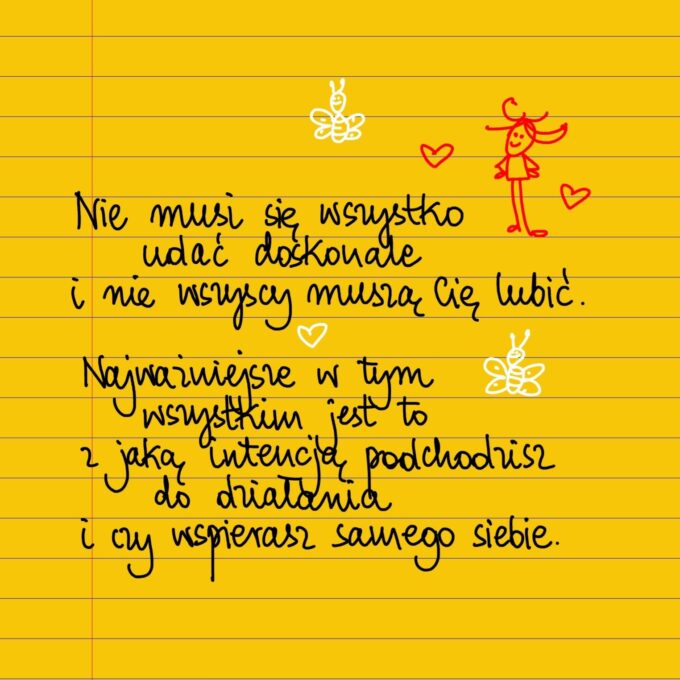 Nie musi się wszystko
udać doskonale
i nie wszyscy muszą Cię lubić.
Najważniejsze w tym
wszystkim jest to
z jaką intencją podchodzisz
do działania
i czy wspierasz samego siebie.